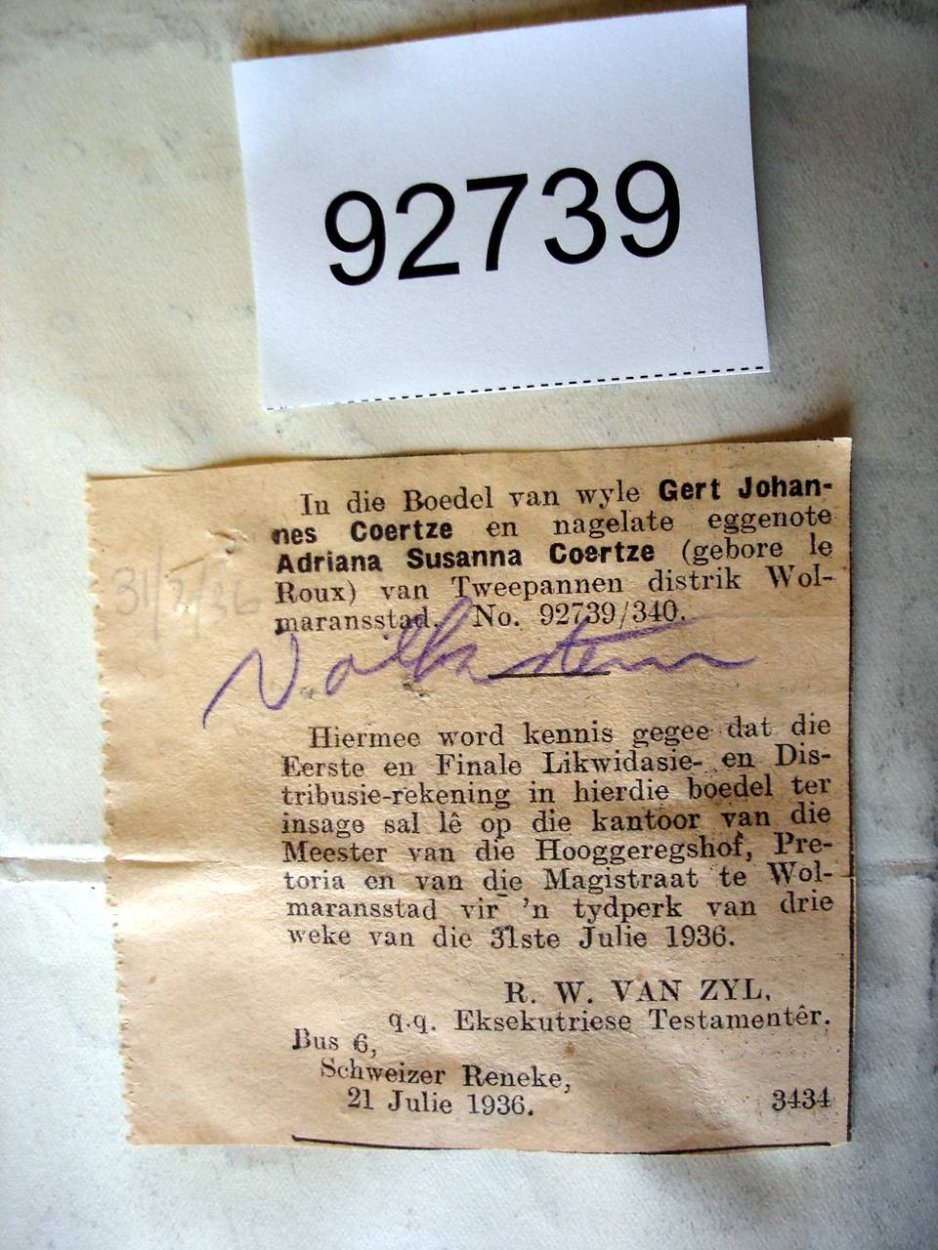 92739
In die Boedel van wyle Gert Johan-
nes Coertze en nagelate eggenote
Adriana Susanna Coertze (gebore le
Roux) van Tweepannen distrik Wol-
maransstad. No. 92739/340.
31/7/36
Volkstem
Hiermee word kennis gegee dat die
Eerste en Finale Likwidasie- en Dis-
tribusie-rekening in hierdie boedel ter
insage sal lê op die kantoor van die
Meester van die Hooggeregshof, Pre-
toria en van die Magistraat te Wol-
maransstad vir 'n tydperk van drie
weke van die 31ste Julie 1936.
R. W. VAN ZYL,
q.q. Eksekutriese Testamentêr.
Bus 6,
Schweizer Reneke,
21 Julie 1936. 3434